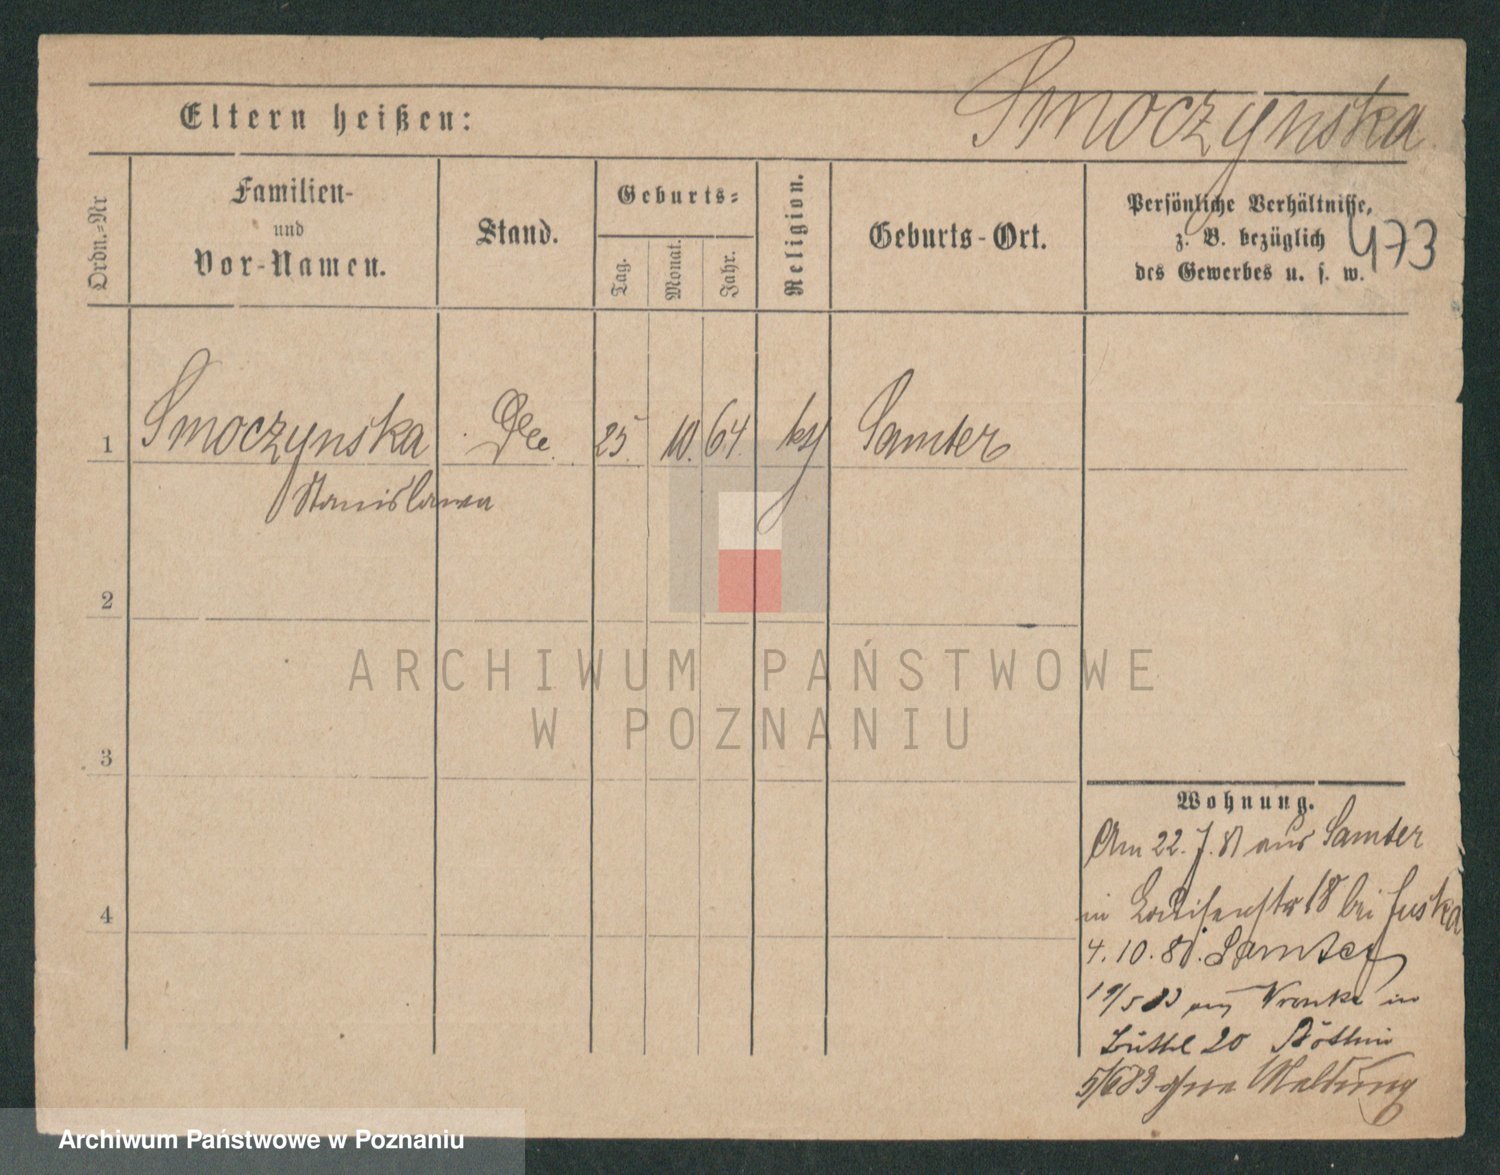 Smoczynska
Eltern heißen:
473
Ordn.=Nr
Familien-
und
Vor-Namen.
Stand.
Geburts=
Tag.
Monat.
Jahr.
Religion.
Geburts-Ort.
Persönliche Verhältnisse,
z. B. bezüglich
des Gewerbes u. s. w.
1 Smoczynska 25. 10. 64. Samter
Stanislawa
2
3
4
Wohnung.
Am 22. 7. 81 aus Samter
in 18 bei
4. 10. 81. Samter
19/5 83 Wronke in
20
5/6 83 ohne Meldung
ARCHIWUM PAŃSTWOWE
W POZNANIU
Archiwum Państwowe w Poznaniu